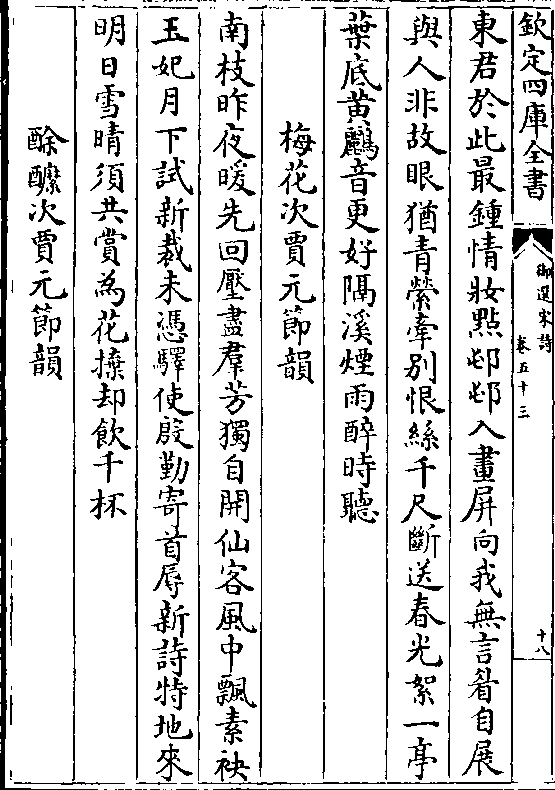 欽定四庫全書
御選宋詩
卷五十三
十八
東君於此最鍾情妝點邨邨入畫屏向我無言眉自展
與人非故眼猶青縈牽别恨絲千尺斷送春光絮一亭
葉底黃鸝音更好隔溪煙雨醉時聽
梅花次賈元節韻
南枝昨夜暖先回壓盡羣芳獨自開仙客風中飄素袂
玉妃月下試新裁未憑驛使殷勤寄首辱新詩特地來
明日雪晴須共賞為花𢷬却飲千杯
酴醿次賈元節韻